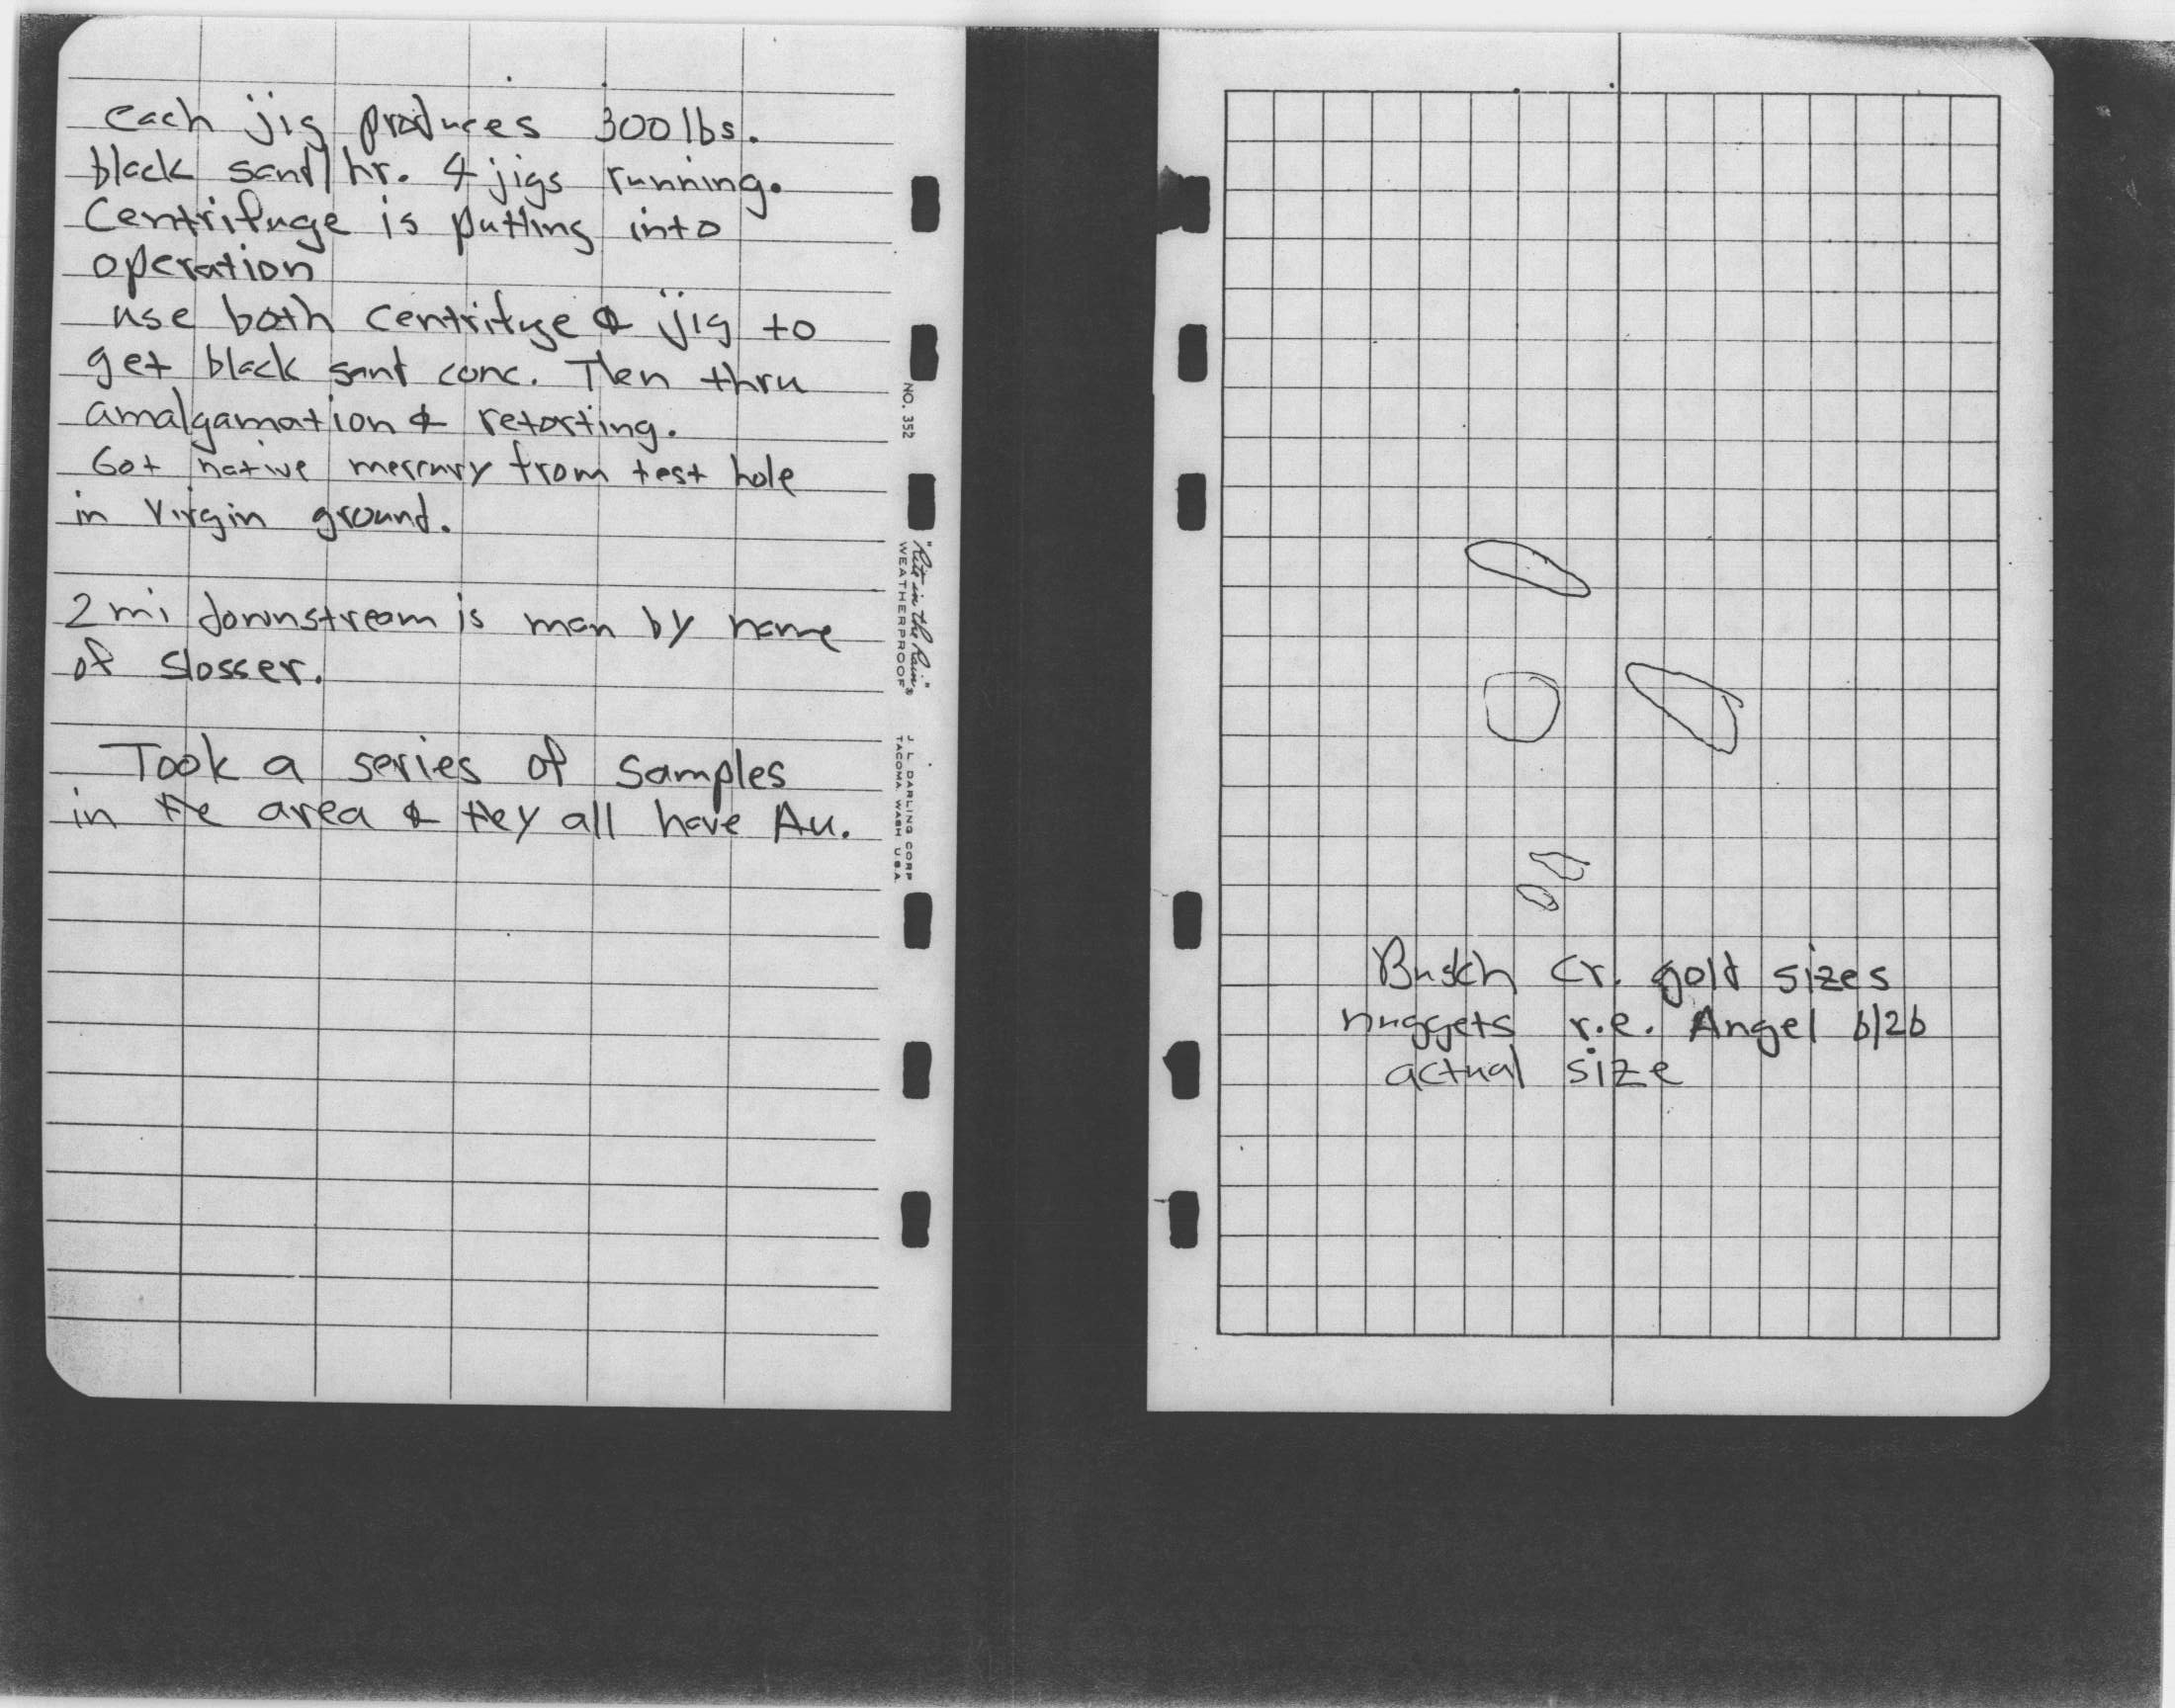 each jig produces 300 lbs.
black sand/hr. 4 jigs running.
Centrifuge is putting into
operation
use both centrifuge & jig to
get black sand conc. Then thru
amalgamation & retorting.
Got native mercury from test hole
in Virgin ground.
2 mi downstream is man by name
of Slosser.
Took a series of samples
in the area & they all have Au.
NO. 352
"Rite in the Rain"®
WEATHERPROOF
J. L. DARLING CORP
TACOMA, WASH U.S.A.
Busch Cr. gold sizes
nuggets r.e. Angel 6/26
actual size